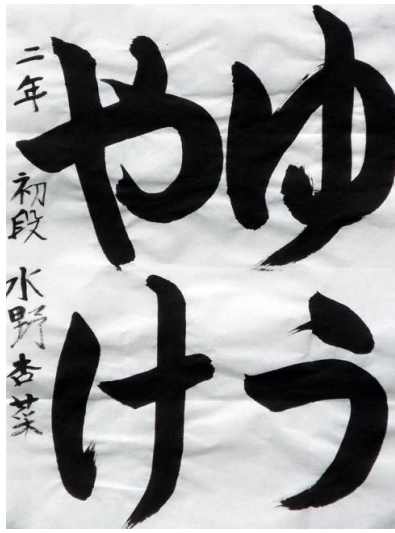 ゆう
やけ
二年 初段 水野杏菜